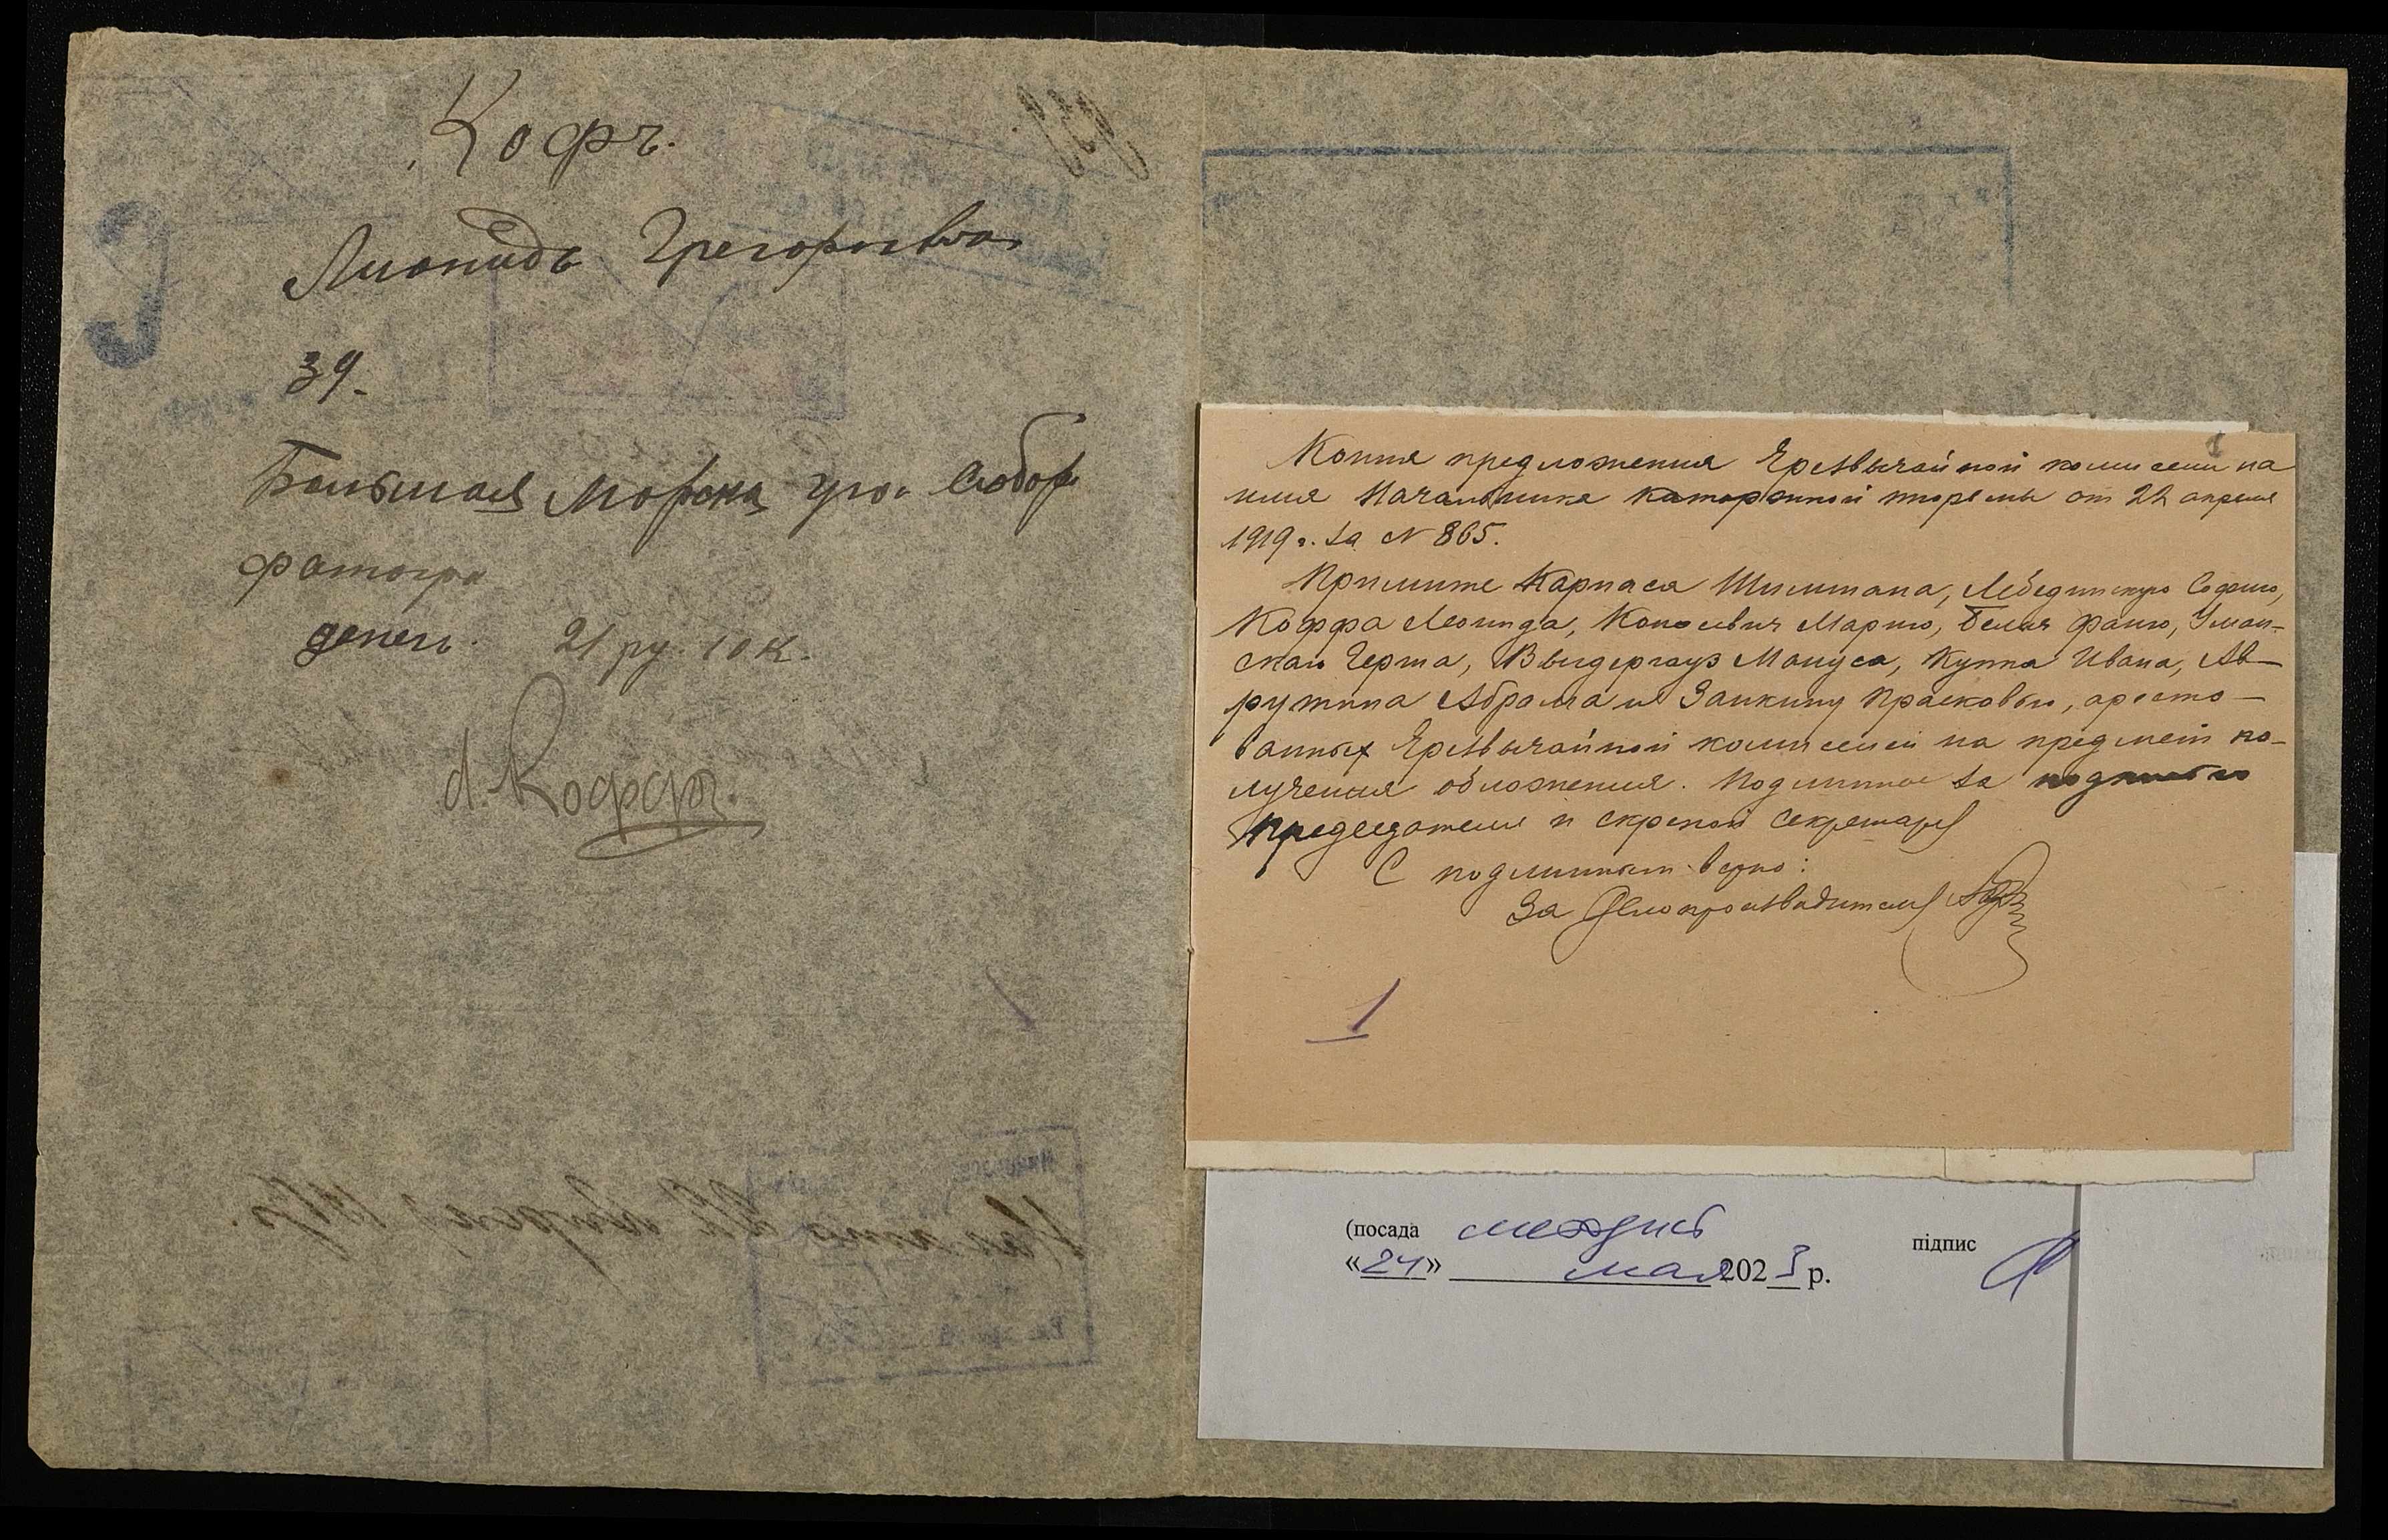 Кофъ.
Лионидъ Грегорьевъ
39.
Большая Морска уго. Собор
фатогра
денег. 21 ру. 10 к.
Л. Коффъ.
Копия предложения Чрезвычайной комиссии на
имя Начальника каторжной тюрьмы от 22 апреля
1919 г. за N 865.
Примите Карпаса Шиммана, Лебединскую Софию,
Коффа Леонида, Марию, Фаню, Уман-
скаю Герта, Выдергауз Мануса, Куппа Ивана, Ав-
рутина Абрама и Заикину Прасковью, аресто-
ванных Чрезвычайной комиссией на предмет по-
лучения обложения. Подлинное за подписью
председателя и скрепой секретаря
С подлинным верно:
За Делопроизводителя
1
(посада підпис
«24» мая 2023 р.